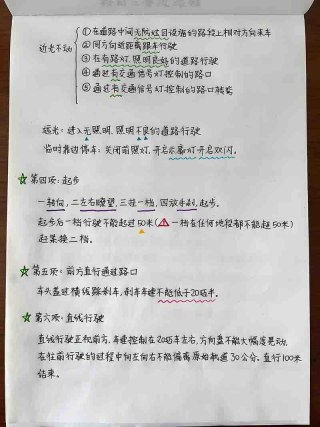 近光不动
①在道路中间无防眩目设施的路段上相对方向来车
②同方向近距离跟车行驶
③在有路灯、照明良好的道路行驶
④通过有交通信号灯控制的路口
⑤通过有交通信号灯控制的路口转弯
远光:进入无照明、照明不良的道路行驶
临时靠边停车:关闭前照灯,开启示廓灯开启双闪。
第四项:起步
一转向,二左右瞭望,三挂一档,四放手刹,起步。
起步后一档行驶不能超过50米(一档在任何地段都不能超50米)
起来挂二档。
第五项:前方直行通过路口
车头盖过横线踩刹车,刹车车速不能低于20码半。
第六项:直线行驶
直线行驶正视前方,车速控制在20码车左右,方向盘不能大幅度晃动,
在往前行驶的过程中向左向右不能偏离原始轨道30公分。直行100米
结束。